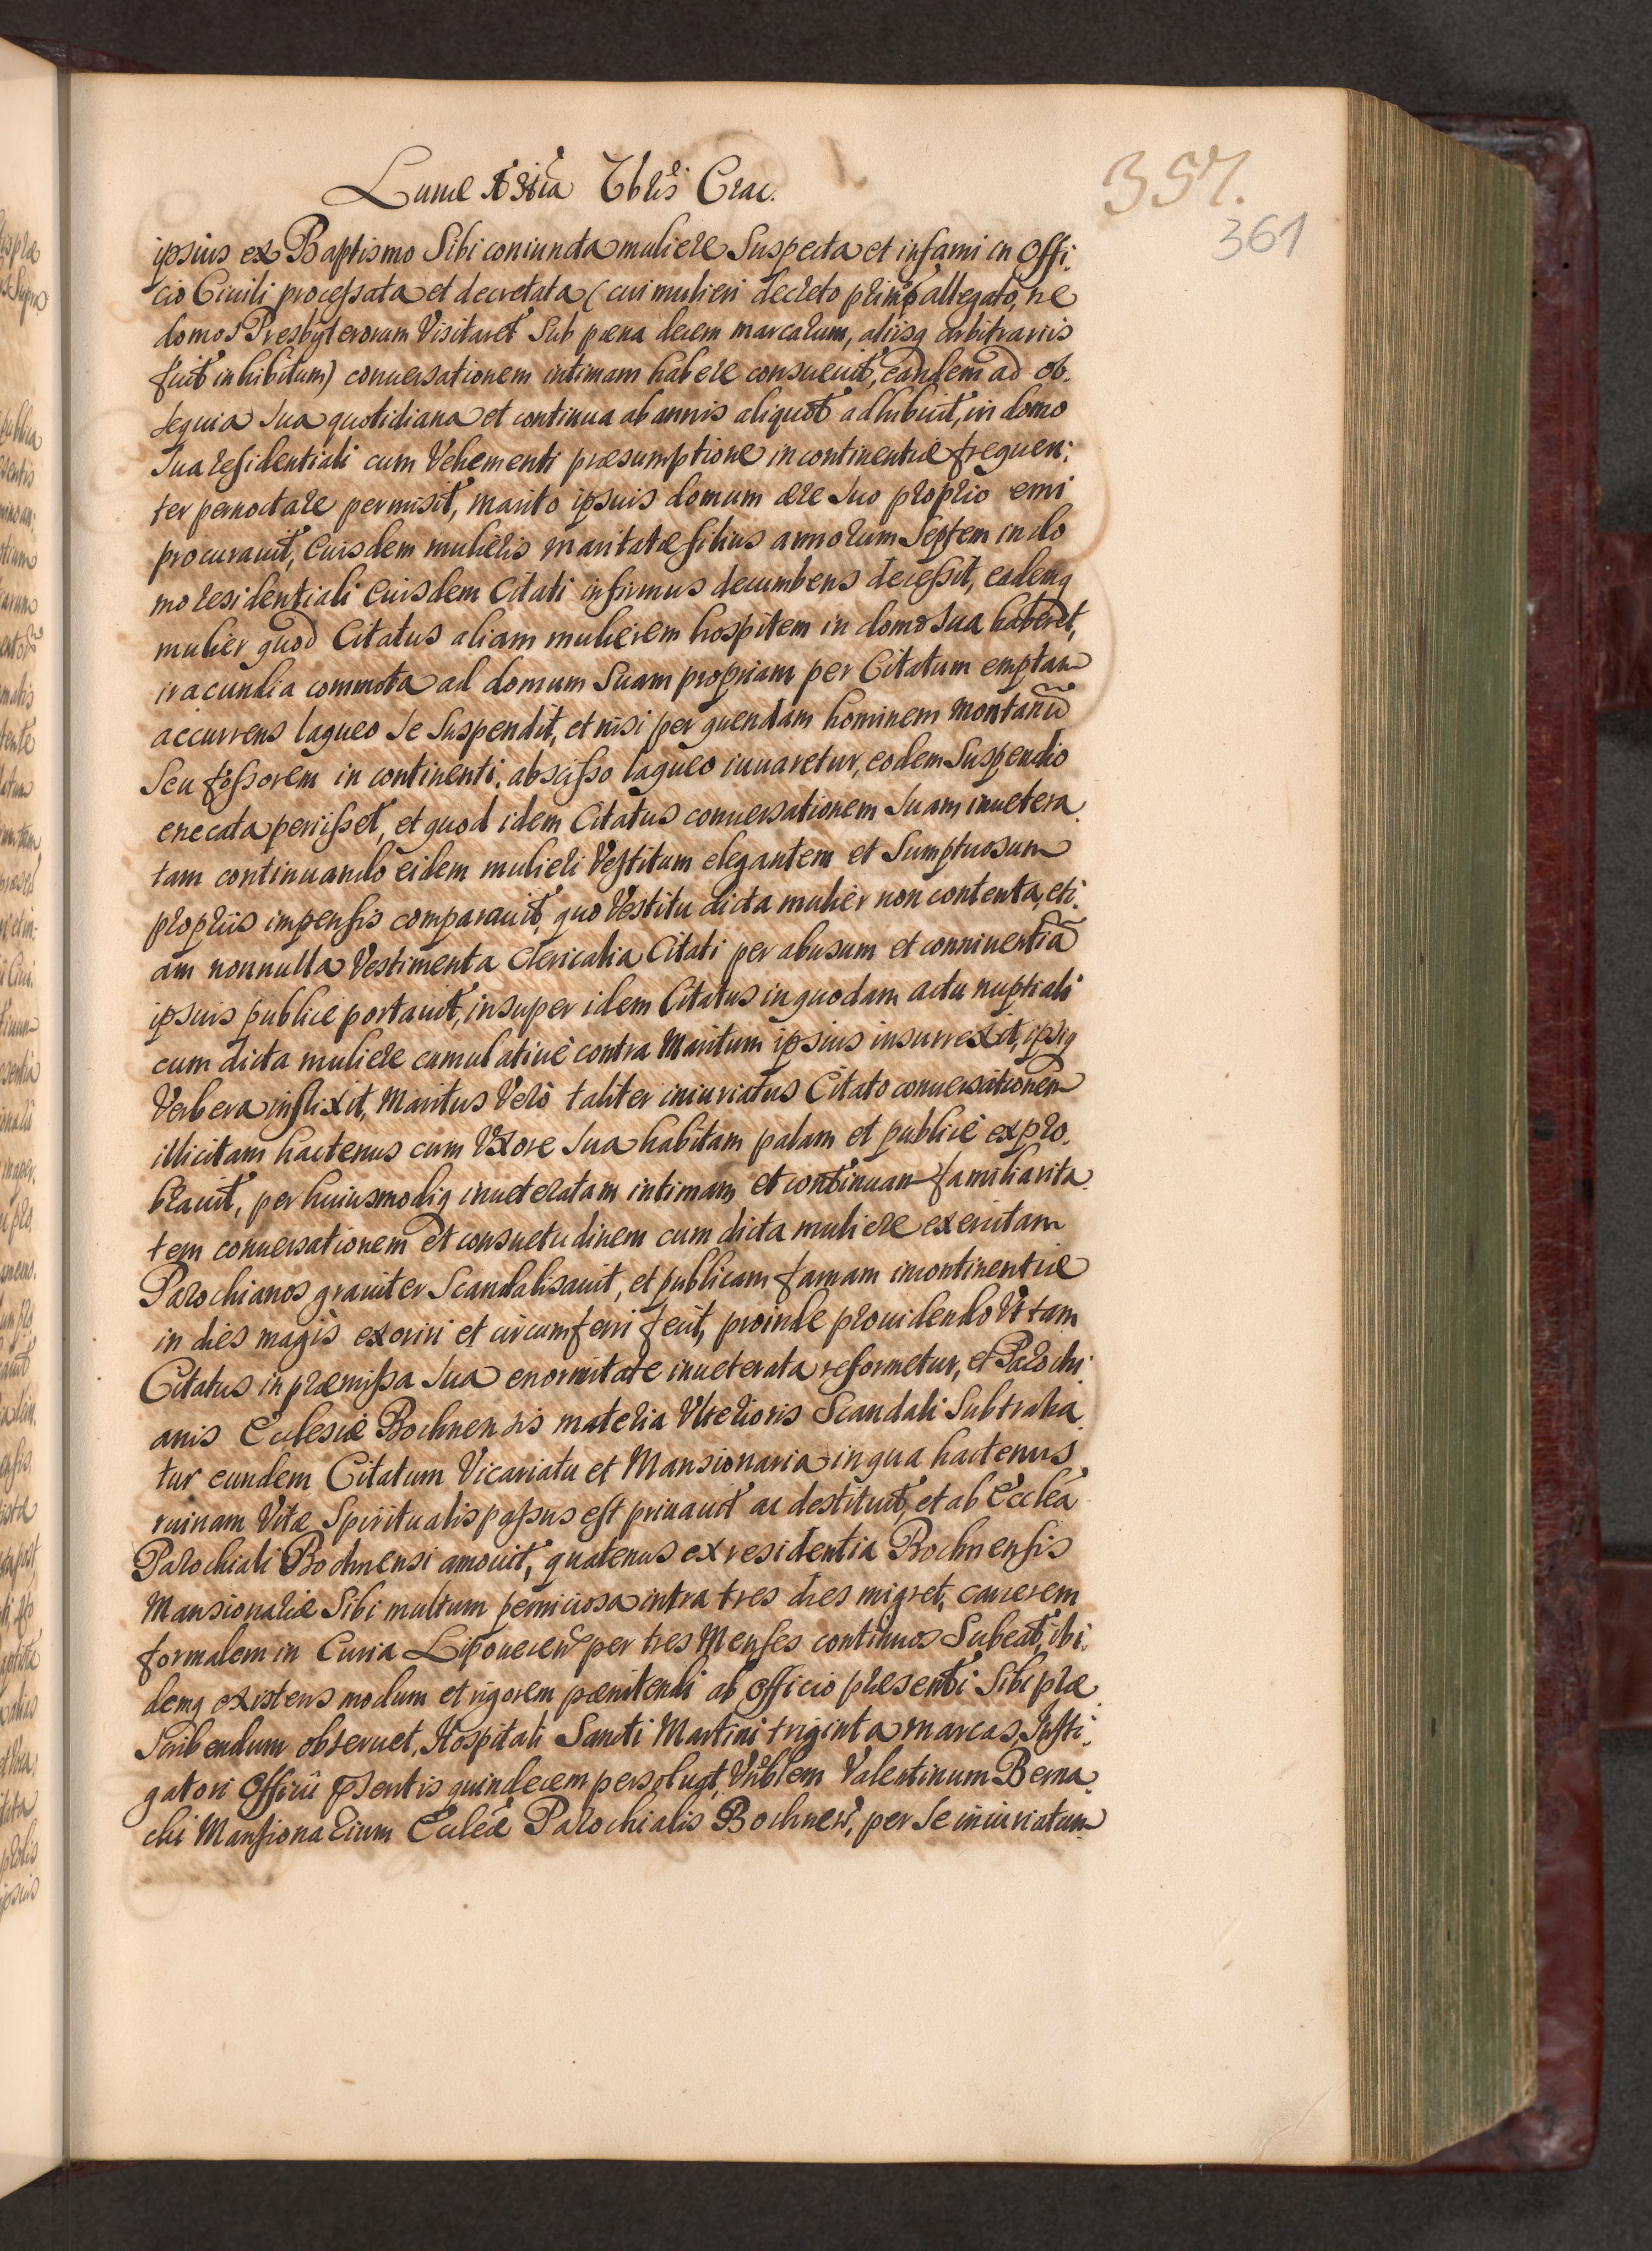 357.
361
Lunæ Crac.
ipsius ex Baptismo Sibi coniuncta muliere Suspecta et infami in Offi:
cio Ciuili processata et decretata (cui mulieri decreto allegato, ne
domos Presbyterorum Visitaret Sub pæna decem marcarum, aliisq arbitrariis
fuit inhibitum) conuersationem intimam habere consueuit, eandem ad ob.
sequia Sua quotidiana et continua ab annis aliquot adhibuit, in domo
Sua residentiali cum Vehementi præsumptione incontinentiæ frequen:
ter pernoctare permisit, marito ipsuis domum ære Suo proprio emi
procurauit, Euisdem mulieris maritatæ filius annorum Septem in do
mo residentiali Euisdem Citati infirmus decumbens decessit, eademq
mulier quod Citatus aliam mulierem hospitem in domo Sua haberet,
iracundia commota ad domum Suam propriam per Citatum emptam
accurrens laqueo Se Suspendit, et nisi per quendam hominem montanũ
Seu fossorem in continenti, abscisso laqueo iuuaretur, eodem Suspendio
enecata periisset, et quod idem Citatus conuersationem Suam inuetera.
tam continuando eidem mulieri Vestitum elegantem et Sumptuosum
propriis impensis comparauit, quo Vestitu dicta mulier non contenta, eti:
am nonnulla Vestimenta Clericalia Citati per abusum et conniuentiã
ipsuis publicè portauit, insuper idem Citatus in quodam actu nuptiali
cum dicta muliere cumulatiuè contra Maritum ipsius insurrexit, ipsiq
Verbera inflixit, Maritus Verò taliter iniuriatus Citato conuersationem
illicitam hactenus cum Vxore Sua habitam palam et publicè expro.
brauit, per huiusmodiq inueteratam intimam et continuam familiarita.
tem conuersationem et consuetudinem cum dicta muliere exercitam
Parochianos grauiter Scandalisauit, et publicam famam incontinentiæ
in dies magis exoriri et circumferri fecit, proinde prouidendo Vt tam
Citatus in præmissa Sua enormitate inueterata reformetur, et Parochi:
anis Ecclesiæ Bochnensis materia Vlterioris Scandali Subtraha.
tur eundem Citatum Vicariatu et Mansionaria in qua hactenus
ruinam Vitæ Spiritualis passus est priuauit ac destituit, et ab Eccleã
Parochiali Bochnensi amouit, quatenus ex residentia Bochnensis
Mansionariæ Sibi multum perniciosa intra tres dies migret, carcerem
formalem in Curia per tres Menses continuos Subeat, ibi.
demq existens modum et rigorem pænitendi ab Officio præsenti Sibi præ
Scribendum obseruet, Hospitali Sancti Martini triginta marcas, Insti:
gatori Officii quindecem persoluat, Valentinum Berna.
chi Mansionarium Ecclæ Parochialis Bochnen, per Se iniuriatum